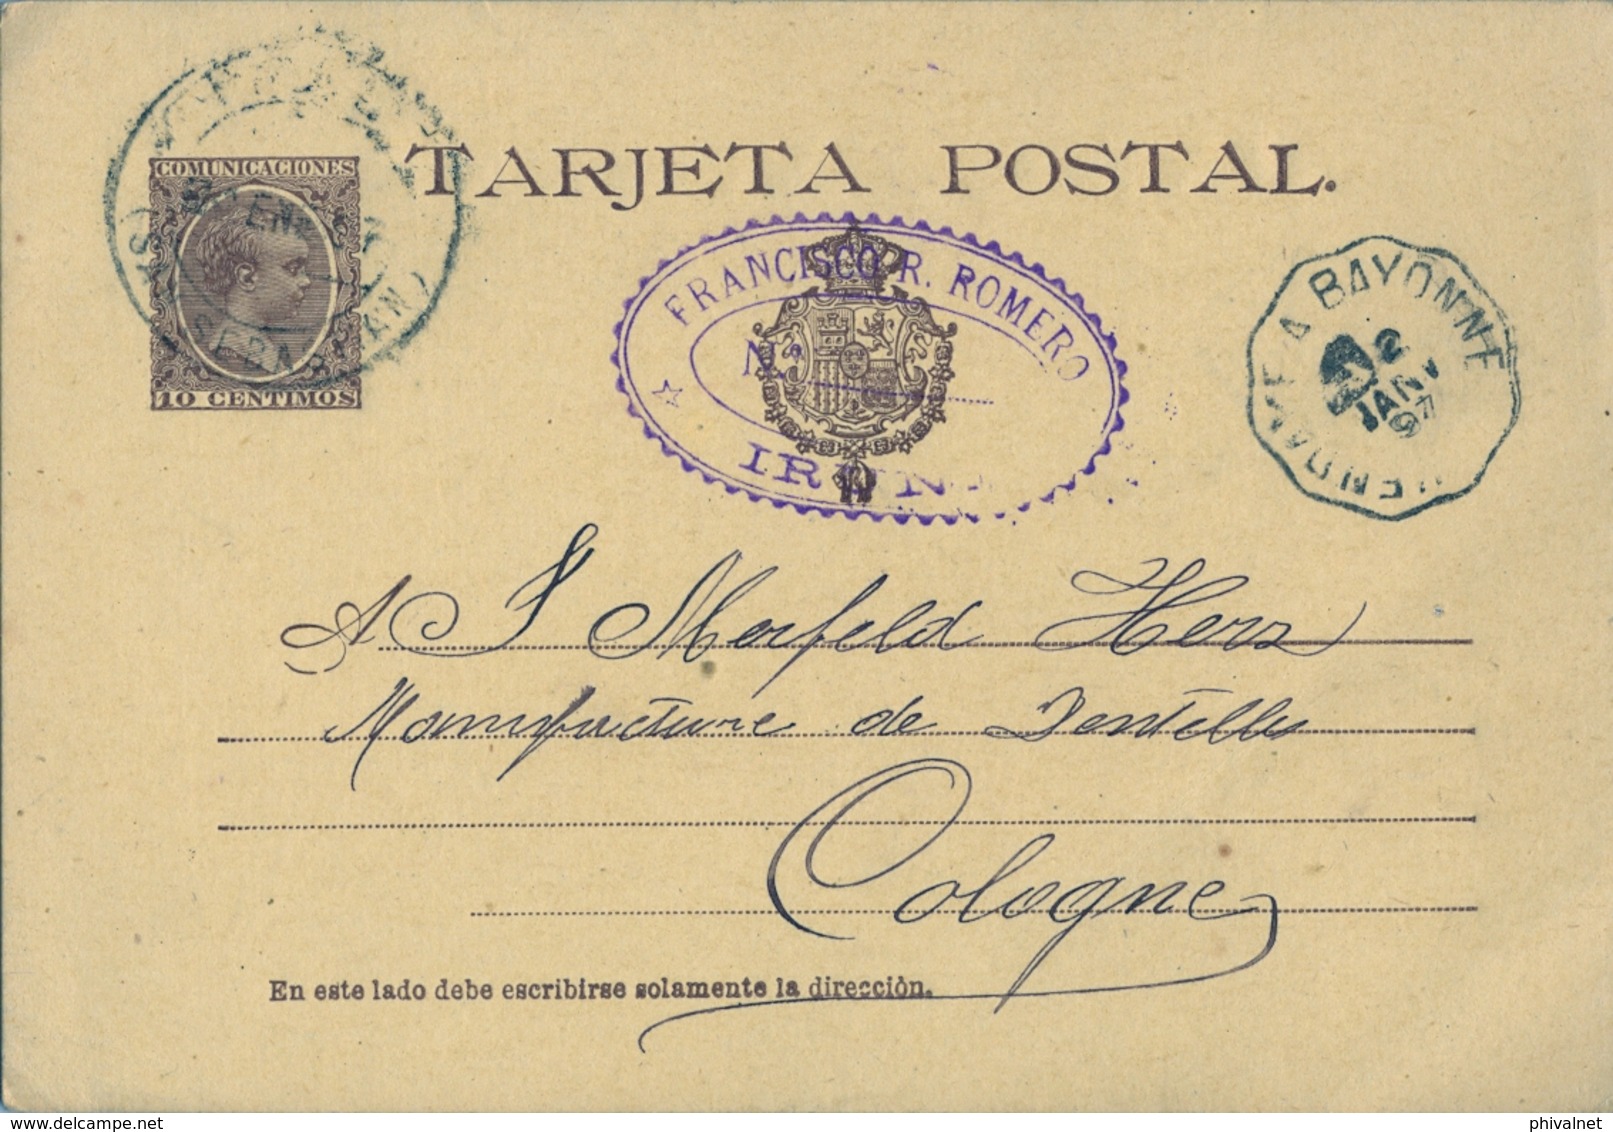 TARJETA POSTAL.
COMUNICACIONES
10 CENTIMOS
ENE
SEBASTIAN)
FRANCISCO R. ROMERO
N.
IRUN
HENDAYE A BAYONNE
2
JANV
97
A J Merfeld Herz
Manufacture de Dentelles
Cologne
En este lado debe escribirse solamente la dirección.
delcampe.net
phivalnet